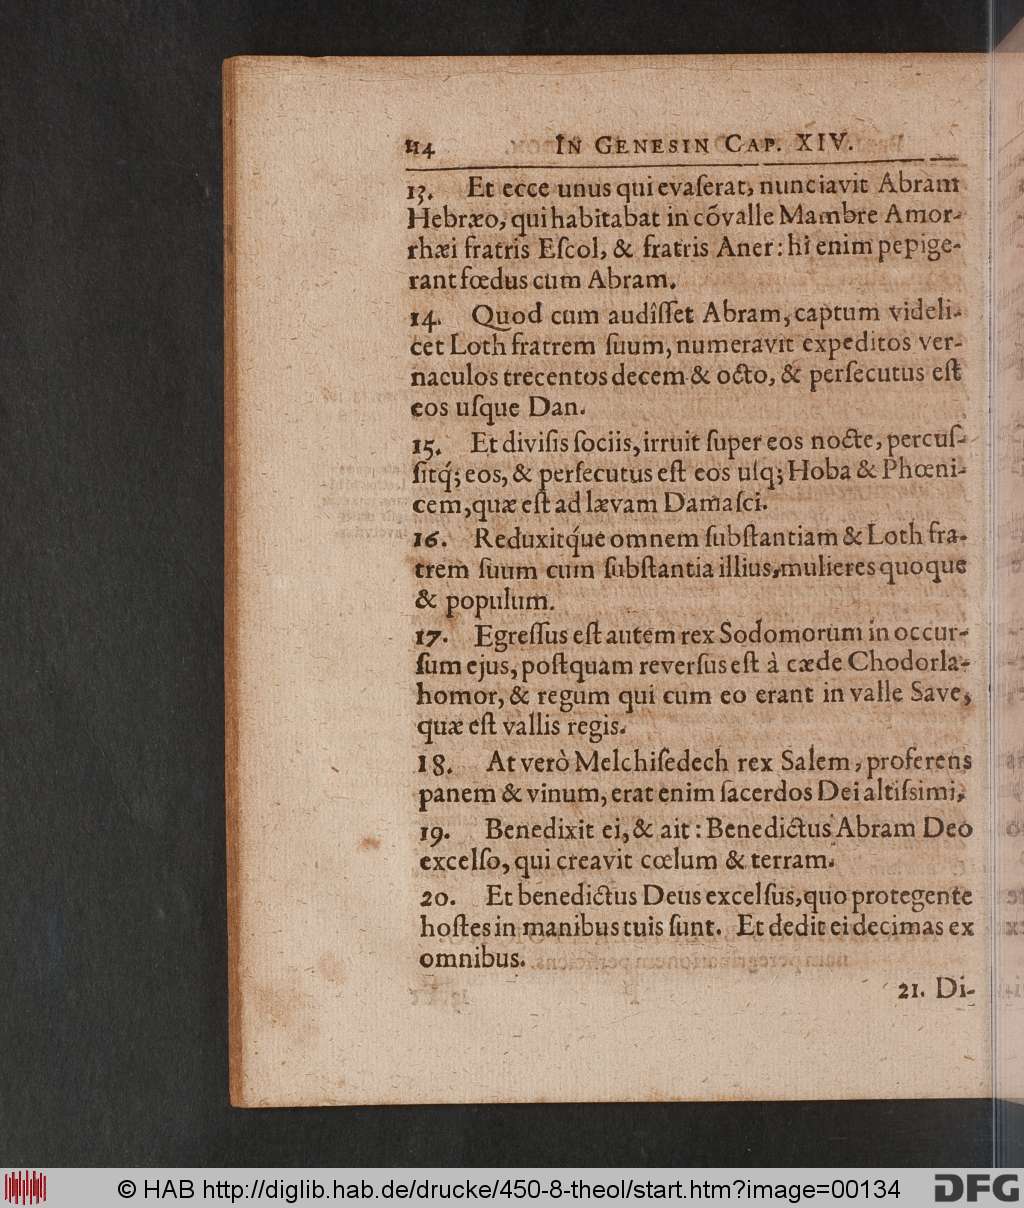 114 IN GENESIN CAP. XIV.
13. Et ecce unus qui evaſerat, nunciavit Abram
Hebræo, qui habitabat in cõvalle Mambre Amor-
rhæi fratris Eſcol, & fratris Aner: hi enim pepige-
rant fœdus cum Abram.
14. Quod cum audîſſet Abram, captum videli-
cet Loth fratrem ſuum, numeravit expeditos ver-
naculos trecentos decem & octo, & perſecutus eſt
eos uſque Dan.
15. Et diviſis ſociis, irruit ſuper eos nocte, percuſ-
ſitq́; eos, & perſecutus eſt eos uſq; Hoba & Phœni-
cem, quæ eſt ad lævam Damaſci.
16. Reduxitq́ue omnem ſubſtantiam & Loth fra-
trem ſuum cum ſubſtantia illius, mulieres quoque
& populum.
17. Egreſſus eſt autem rex Sodomorum in occur-
ſum ejus, poſtquam reverſus eſt à cæde Chodorla-
homor, & regum qui cum eo erant in valle Save,
quæ eſt vallis regis.
18. At verò Melchiſedech rex Salem, proferens
panem & vinum, erat enim ſacerdos Dei altiſsimi,
19. Benedixit ei, & ait: Benedictus Abram Deo
excelſo, qui creavit cœlum & terram.
20. Et benedictus Deus excelſus, quo protegente
hoſtes in manibus tuis ſunt. Et dedit ei decimas ex
omnibus.
21. Di-
© HAB http://diglib.hab.de/drucke/450-8-theol/start.htm?image=00134
DFG